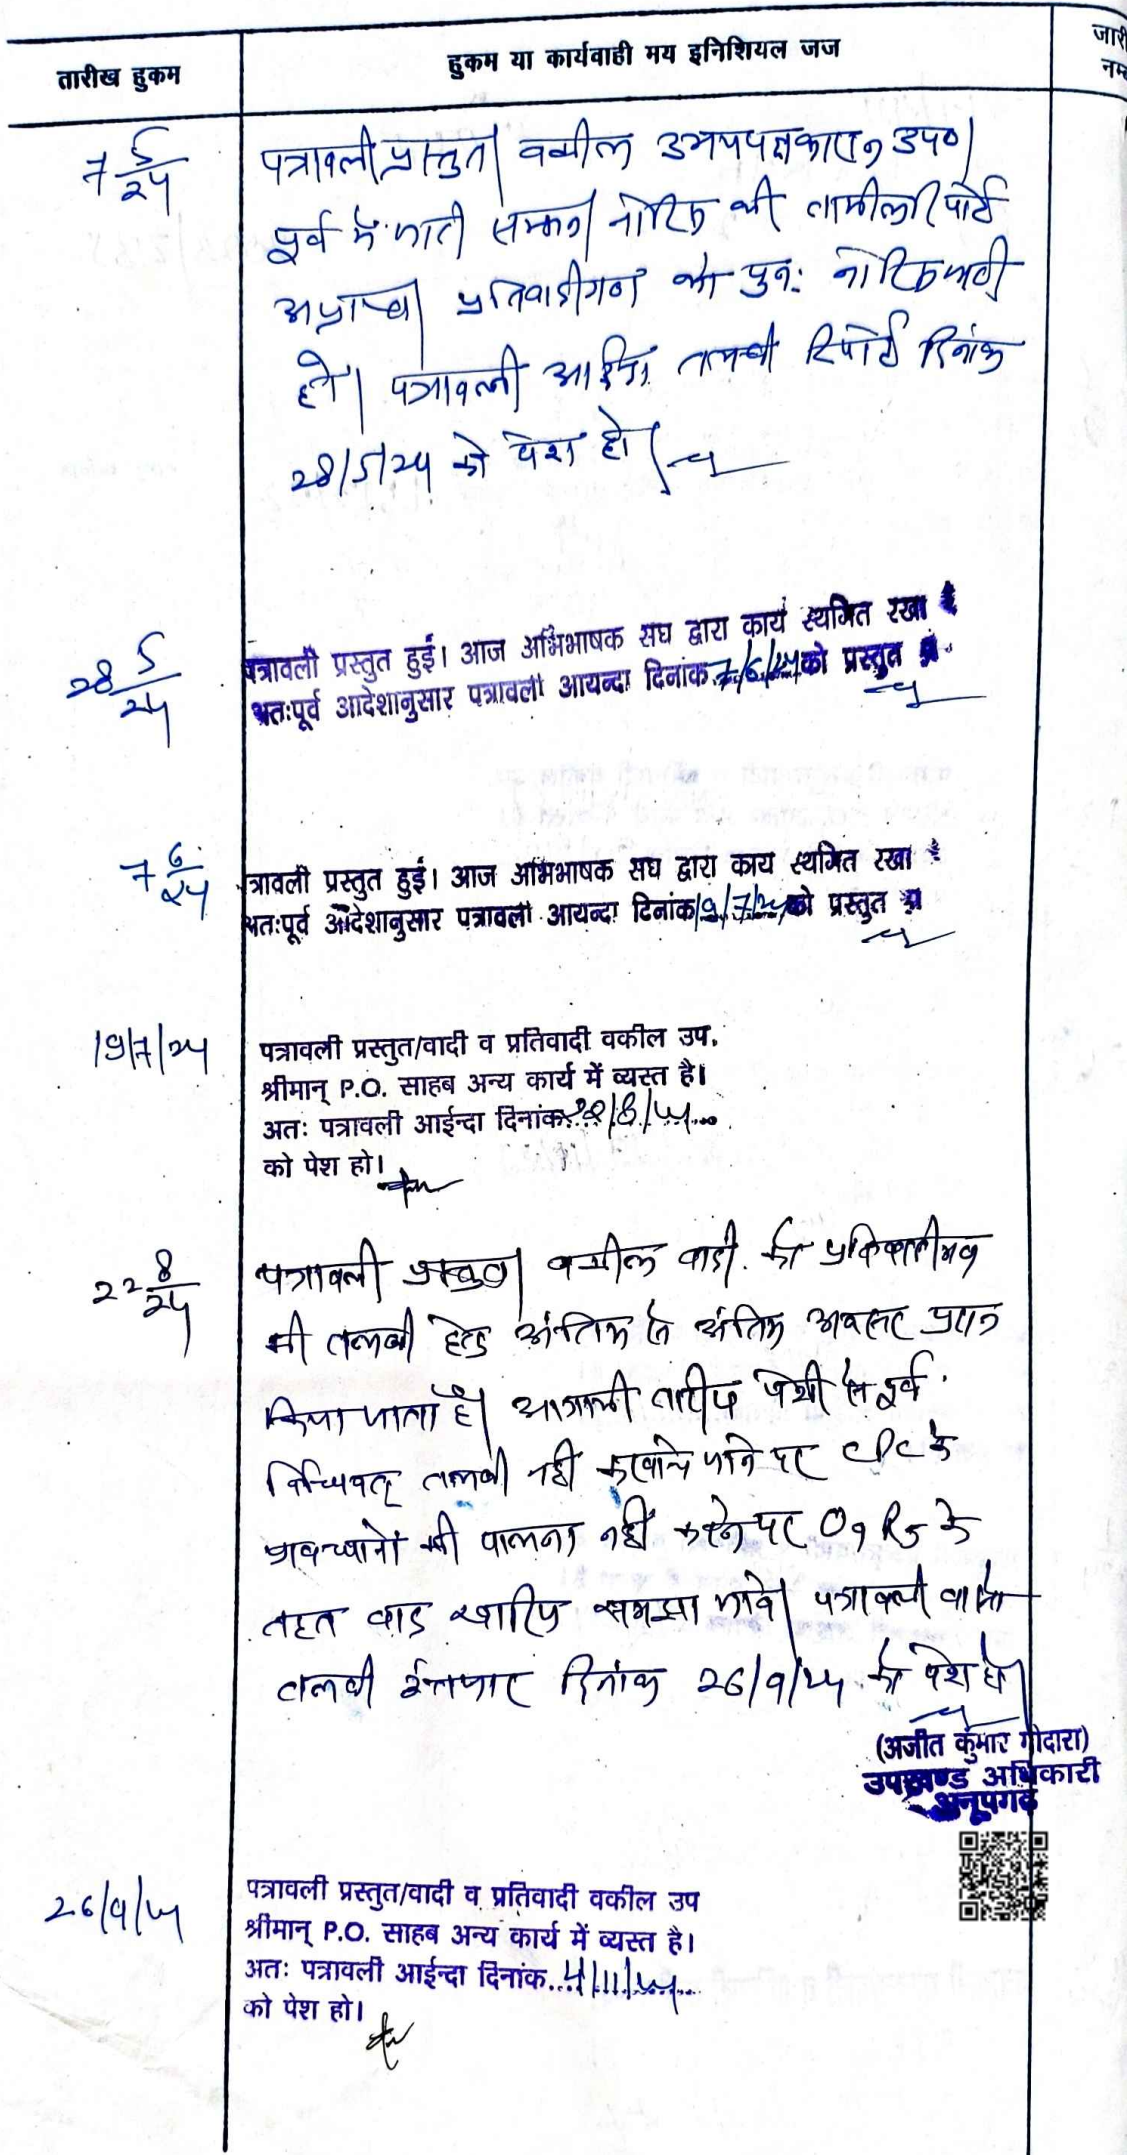 तारीख हुकम
हुकम या कार्यवाही मय इनिशियल जज
जारी
नम्
7 5/24
पत्रावली प्रस्तुत। वकील उभयपक्षकारान उप०।
पूर्व में जारी सम्मन/नोटिस की तामील रिपोर्ट
अप्राप्त। प्रतिवादीगण को पुनः नोटिस जारी
हो। पत्रावली आईन्दा तलबी रिपोर्ट दिनांक
28/5/24 को पेश हो।
28 5/24
पत्रावली प्रस्तुत हुई। आज अभिभाषक संघ द्वारा कार्य स्थगित रखा है
अतःपूर्व आदेशानुसार पत्रावली आयन्दा दिनांक 7/6/24 को प्रस्तुत
7 6/24
त्रावली प्रस्तुत हुई। आज अभिभाषक संघ द्वारा कार्य स्थगित रखा है
अतःपूर्व आदेशानुसार पत्रावली आयन्दा दिनांक 19/7/24 को प्रस्तुत
19/7/24
पत्रावली प्रस्तुत/वादी व प्रतिवादी वकील उप.
श्रीमान् P.O. साहब अन्य कार्य में व्यस्त है।
अतः पत्रावली आईन्दा दिनांक..22/8/24...
को पेश हो।
22 8/24
पत्रावली प्रस्तुत। वकील वादी. को प्रतिवादीगण
की तलबी हेतु अंतिम से अंतिम अवसर प्रदान
किया जाता है। आगामी तारीख पेशी से पूर्व
विधिवत् तलबी नहीं करवाये जाने पर CPC के
प्रावधानों की पालना नहीं करने पर O9 R5 के
तहत वाद खारिज समझा जावे। पत्रावली वास्ते
तलबी इंतजार दिनांक 26/9/24 को पेश हो।
(अजीत कुमार गोदारा)
उपखण्ड अधिकारी
अनूपगढ
26/9/24
पत्रावली प्रस्तुत/वादी व प्रतिवादी वकील उप
श्रीमान् P.O. साहब अन्य कार्य में व्यस्त है।
अतः पत्रावली आईन्दा दिनांक..4/11/24...
को पेश हो।